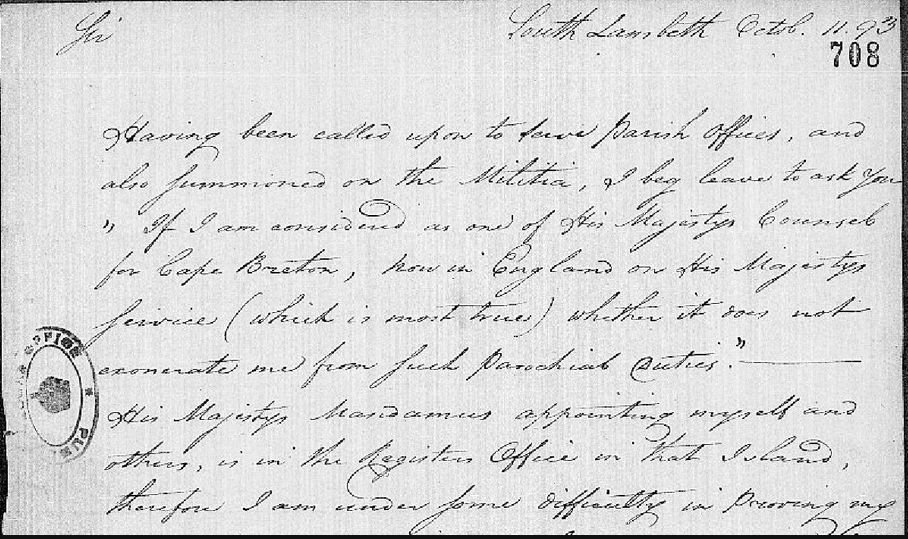 Sir
South Lambeth Octob. 11. 93
708
Having been called upon to serve Parish Offices, and
also summoned on the Militia, I beg leave to ask you
" If I am considered as one of His Majestys Counsel
for Cape Breton, now in England on His Majestys
Service (which is most true) whether it does not
exonerate me from such Parochial Duties."
His Majestys Mandamus appointing myself and
others, is in the Registers Office in that Island,
therefore I am under some difficulty in Proving my
OFFICE
PUB